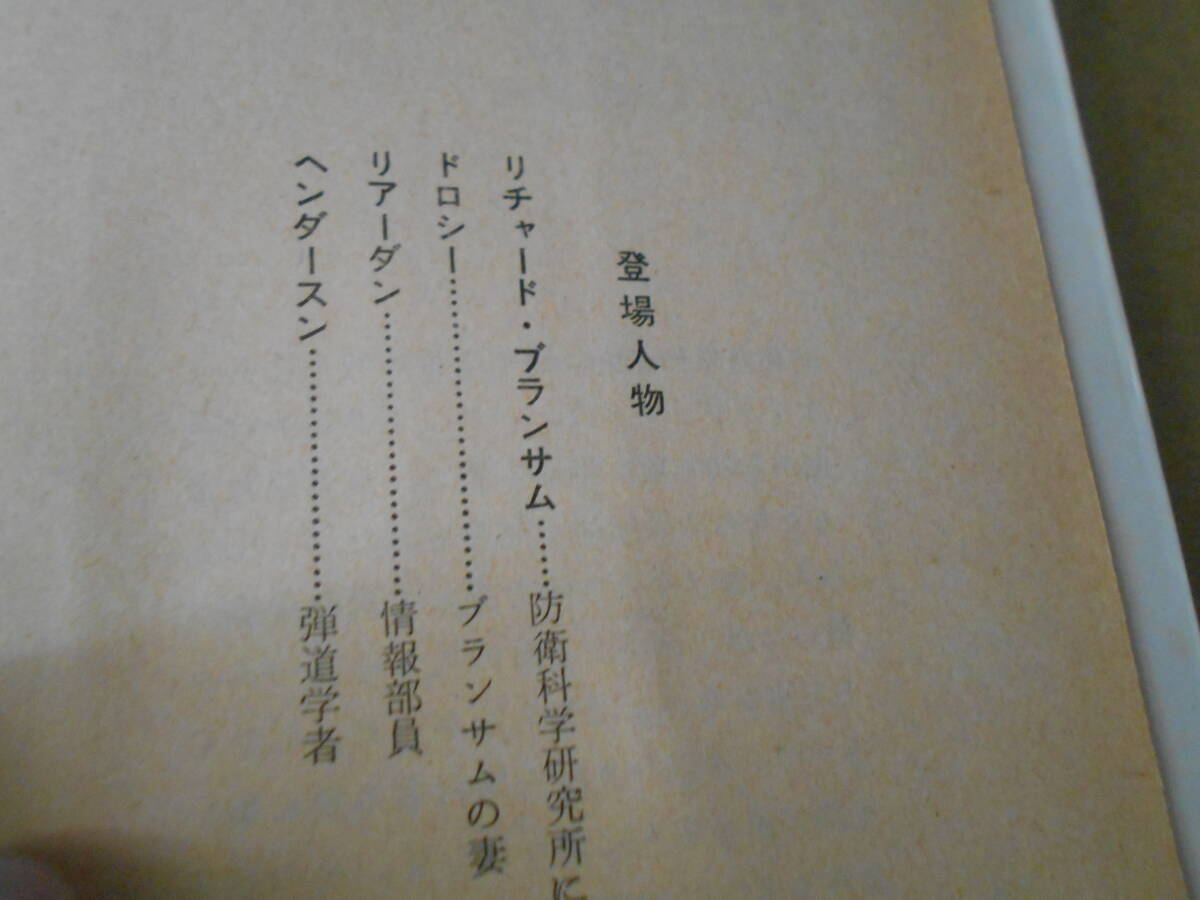 登場人物
リチャード・ブランサム……防衛科学研究所に
ドロシー……………………ブランサムの妻
リアーダン…………………情報部員
ヘンダースン………………弾道学者